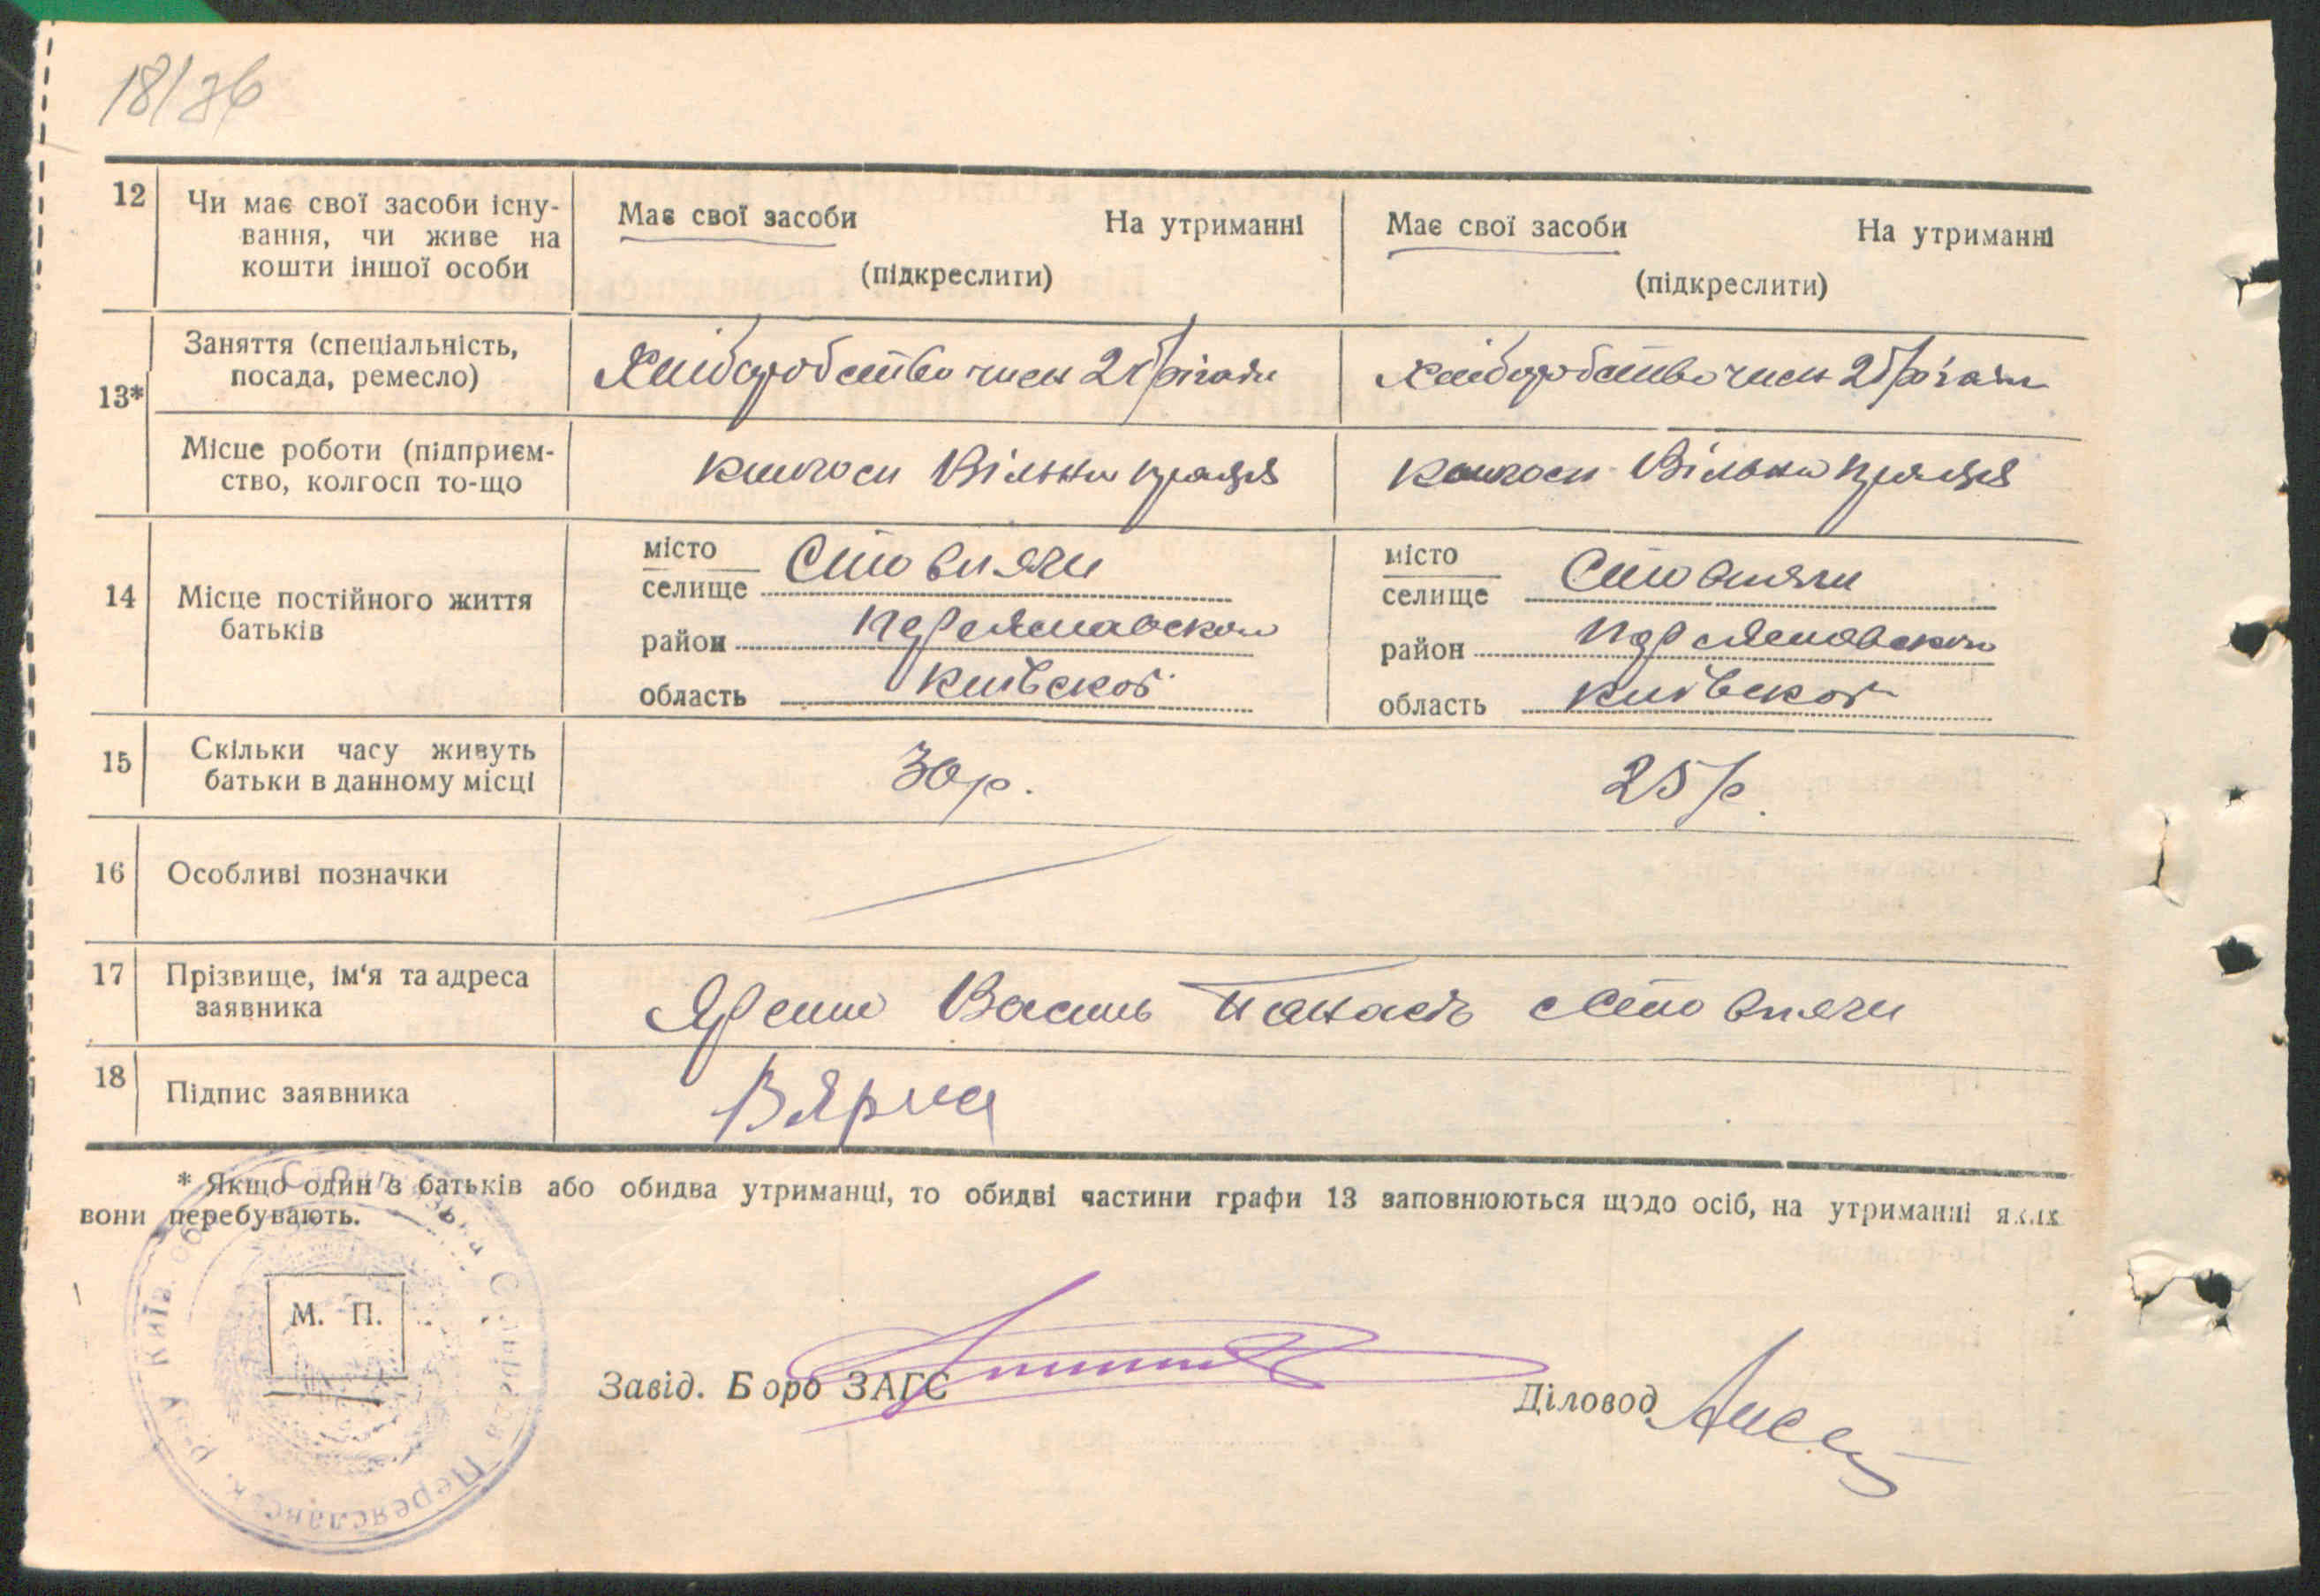 18/36
12 Чи має свої засоби існу-
вання, чи живе на
кошти іншої особи
Має свої засоби На утриманні
(підкреслити)
Має свої засоби На утриманні
(підкреслити)
13*
Заняття (спеціальність,
посада, ремесло)
Хліборобство член 2 бригади
Хліборобство член 2 бригади
Місце роботи (підприєм-
ство, колгосп то-що
колгосп Вільна праця
колгосп Вільна праця
14 Місце постійного життя
батьків
місто
селище Стовпяги
район Переяславском
область Київской
місто
селище Стовпяги
район Переяславском
область Київской
15 Скільки часу живуть
батьки в данному місці
30 р.
25 р.
16 Особливі позначки
17 Прізвище, ім'я та адреса
заявника
Василь Панасів с Стовпяги
18 Підпис заявника
* Якщо один з батьків або обидва утриманці, то обидві частини графи 13 заповнюються щодо осіб, на утриманні яких
вони перебувають.
М. П.
Завід. Бюро ЗАГС
Діловод